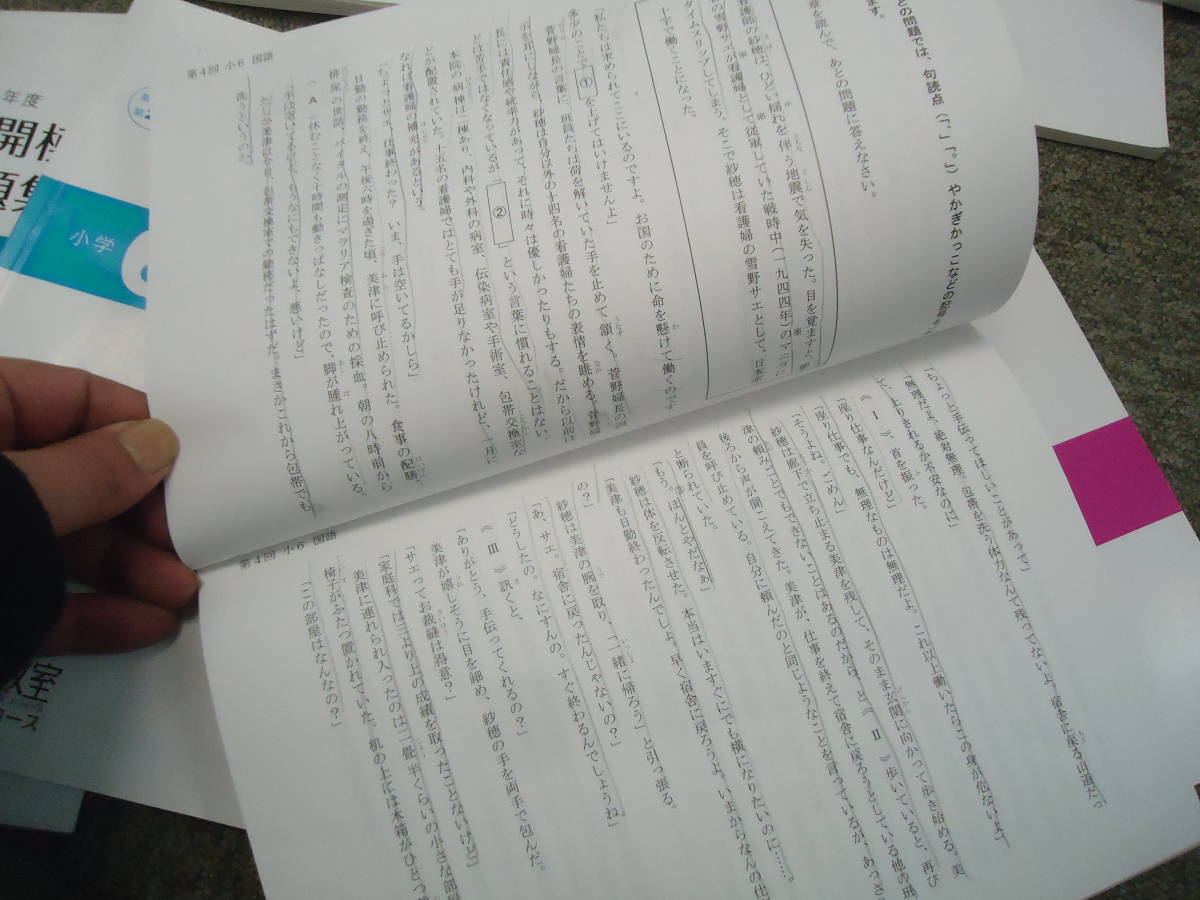 との問題では、句読点(「、」「。」)やかぎかっこなどの記号
章を読んで、あとの問題に答えなさい。
ます。
看護師の紗穂は、ひどい揺れを伴う地震で気を失った。目を覚ますと、
の雪野サエが看護婦として従軍していた戦時中(一九四四年)のマニラ
タイムスリップしてしまう。そこで紗穂は看護婦の雪野サエとして、日本赤
十字で働くことになった。
「私たちは求められてここにいるのですよ。お国のために命を懸けて働くのです
多少のことで ① をあげてはいけませんよ」
菅野婦長の言葉に、班員たちは荷を解いていた手を止めて頷く。菅野婦長の訓
示を耳にしながら、紗穂は自分以外の十四名の看護婦たちの表情を眺める。菅野婦
長には責任感や統率力があって、それに時々は優しかったりもする。だから以前ほ
どは苦手ではなくなっているが「 ② 」という言葉に慣れることはない。
本院の病棟は二棟あり、内科や外科の病室、伝染病室や手術室、包帯交換室な
どが配置されていた。十五名の看護婦ではとても手が足りなかったけれど、一月に
なれば看護婦の補充があるという。
「ちょっとサエ、仕事終わった? いま、手は空いてるかしら」
日勤の勤務を終え、午後六時を過ぎた頃、美津に呼び止められた。食事の配膳、
排尿の世話、バイタルの測定にマラリア検査のための採血。朝の八時前から
( A )一休むことなく十時間も動きっぱなしだったので、脚が腫れ上がっている。
「手は空いてるけど、もうなにもできないよ、悪いけど」
たしか美津は今日、包帯交換室での勤務だったはずだ。まさかこれから包帯でも
洗うというのか。
第4回 小6 国語
「ちょっと手伝ってほしいことがあって」
「無理だよ、絶対無理。包帯を洗う体力なんて残ってないよ。宿舎に戻る山道だっ
て、上りきれるか不安なのに」
《 Ⅰ 》、首を振った。
「座り仕事なんだけど」
「座り仕事でも、無理なものは無理だよ。これ以上働いたらこの身が危ないよ」
「そうよね。ごめん」
紗穂は廊下で立ち止まる美津を残して、そのまま玄関に向かって歩き始める。美
津の頼みごとでもできないことはあるのだから、と《 Ⅱ 》歩いていると、再び
後ろから声が聞こえてきた。美津が、仕事を終えて宿舎に戻ろうとしている他の班
員を呼び止めている。自分に頼んだのと同じようなことを言っているが、あっさ
と断られていた。
「もう。③ほんとやだなぁ」
紗穂は体を反転させた。本当はいますぐにでも横になりたいのに……。
「美津も日勤終わったんでしょ。早く宿舎に戻ろうよ。いまからなんの仕
の?」
紗穂は美津の腕を取り、「一緒に帰ろう」と引っ張る。
「あ、サエ。宿舎に戻ったんじゃないの?」
「どうしたの。なにすんの。すぐ終わるんでしょうね」
《 Ⅲ 》訊くと、
「ありがとう、手伝ってくれるの?」
美津が嬉しそうに目を細め、紗穂の手を両手で包んだ。
「サエってお裁縫は得意?」
「家庭科では三より上の成績を取ったことないけど」
美津に連れられ入ったのは二畳半くらいの小さな部屋
椅子がふたつ置かれていた。机の上には木箱がひとつ
「この部屋はなんなの?」
第4回 小6 国語
年度
小学
教室
コース